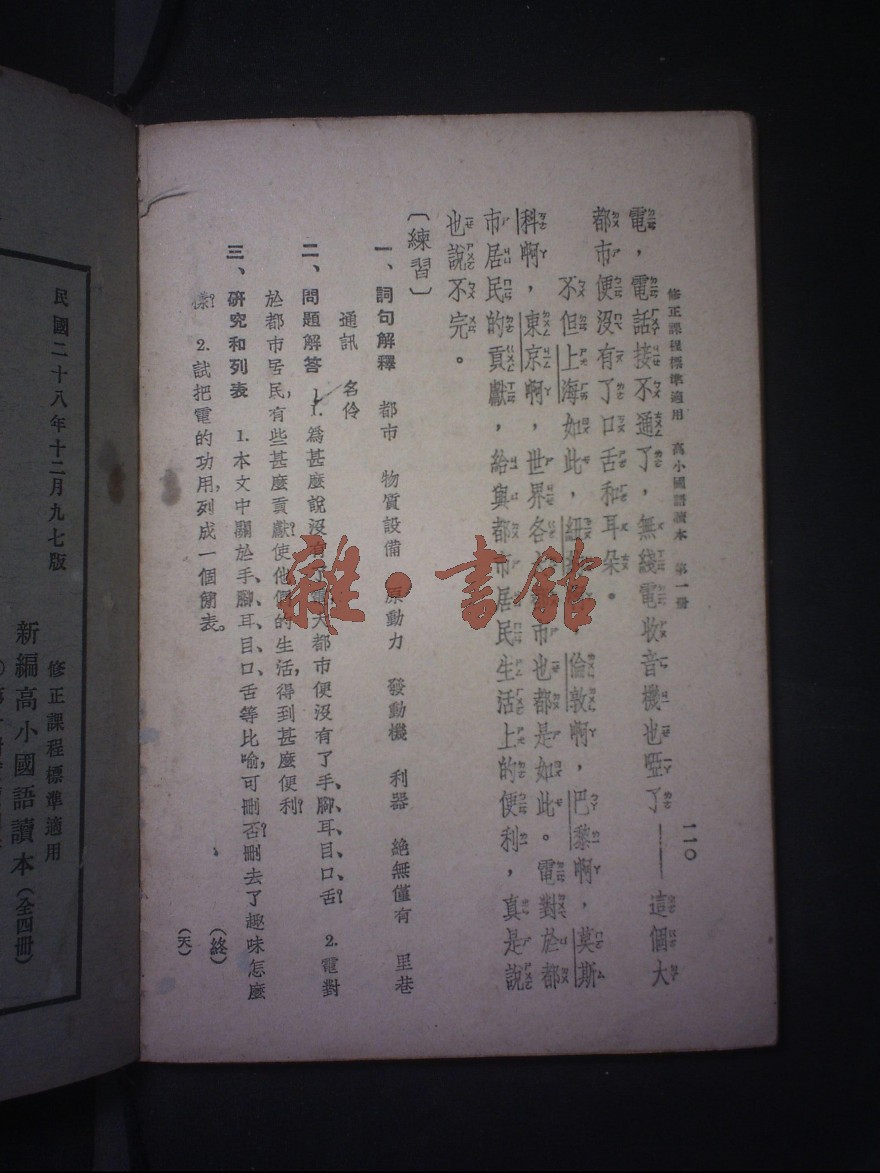 修正課程標準適用 高小國語讀本 第一册
一一〇
電，電話接不通了，無綫電收音機也啞了——這個大
都市便沒有了口舌和耳朶。
不但上海如此，紐 ，倫敦啊，巴黎啊，莫斯
科啊，東京啊，世界各 市也都是如此。電對於都
市居民的貢獻，給與都市居民生活上的便利，真是說
也說不完。
〔練習〕
一、詞句解釋 都市 物質設備 原動力 發動機 利器 絕無僅有 里巷
通訊 名伶
二、問題解答 1.爲甚麼說沒有了電大都市便沒有了手、脚、耳、目、口、舌？ 2.電對
於都市居民，有些甚麼貢獻？使他們的生活，得到甚麼便利？
三、硏究和列表 1.本文中關於手、脚、耳、目、口、舌等比喻，可删否？删去了趣味怎麼
樣？ 2.試把電的功用，列成一個簡表。
（終）
（天）
雜·書館
民國二十八年十二月九七版
修正課程標準適用
新編高小國語讀本（全四册）